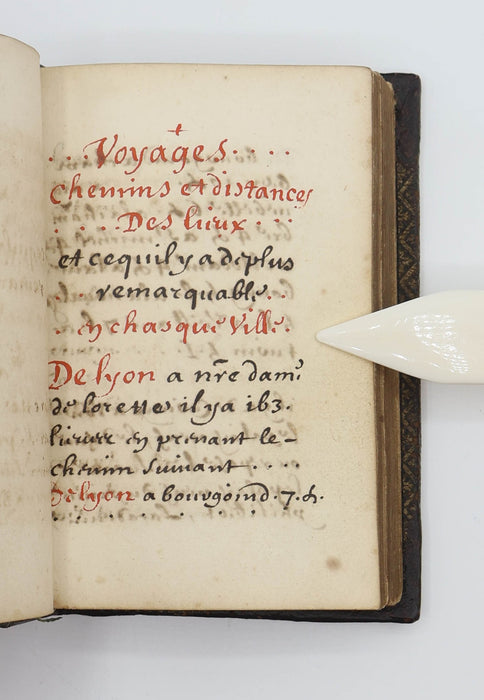 Voyages
Chemins et distances
Des lieux
et ce quil y a de plus
remarquable
en chasque Ville.
De lyon a nr̃e dam.
de lorette il y a 163.
lieues en prenant le-
chemin suivant
De lyon a bourgoind. 7. h.